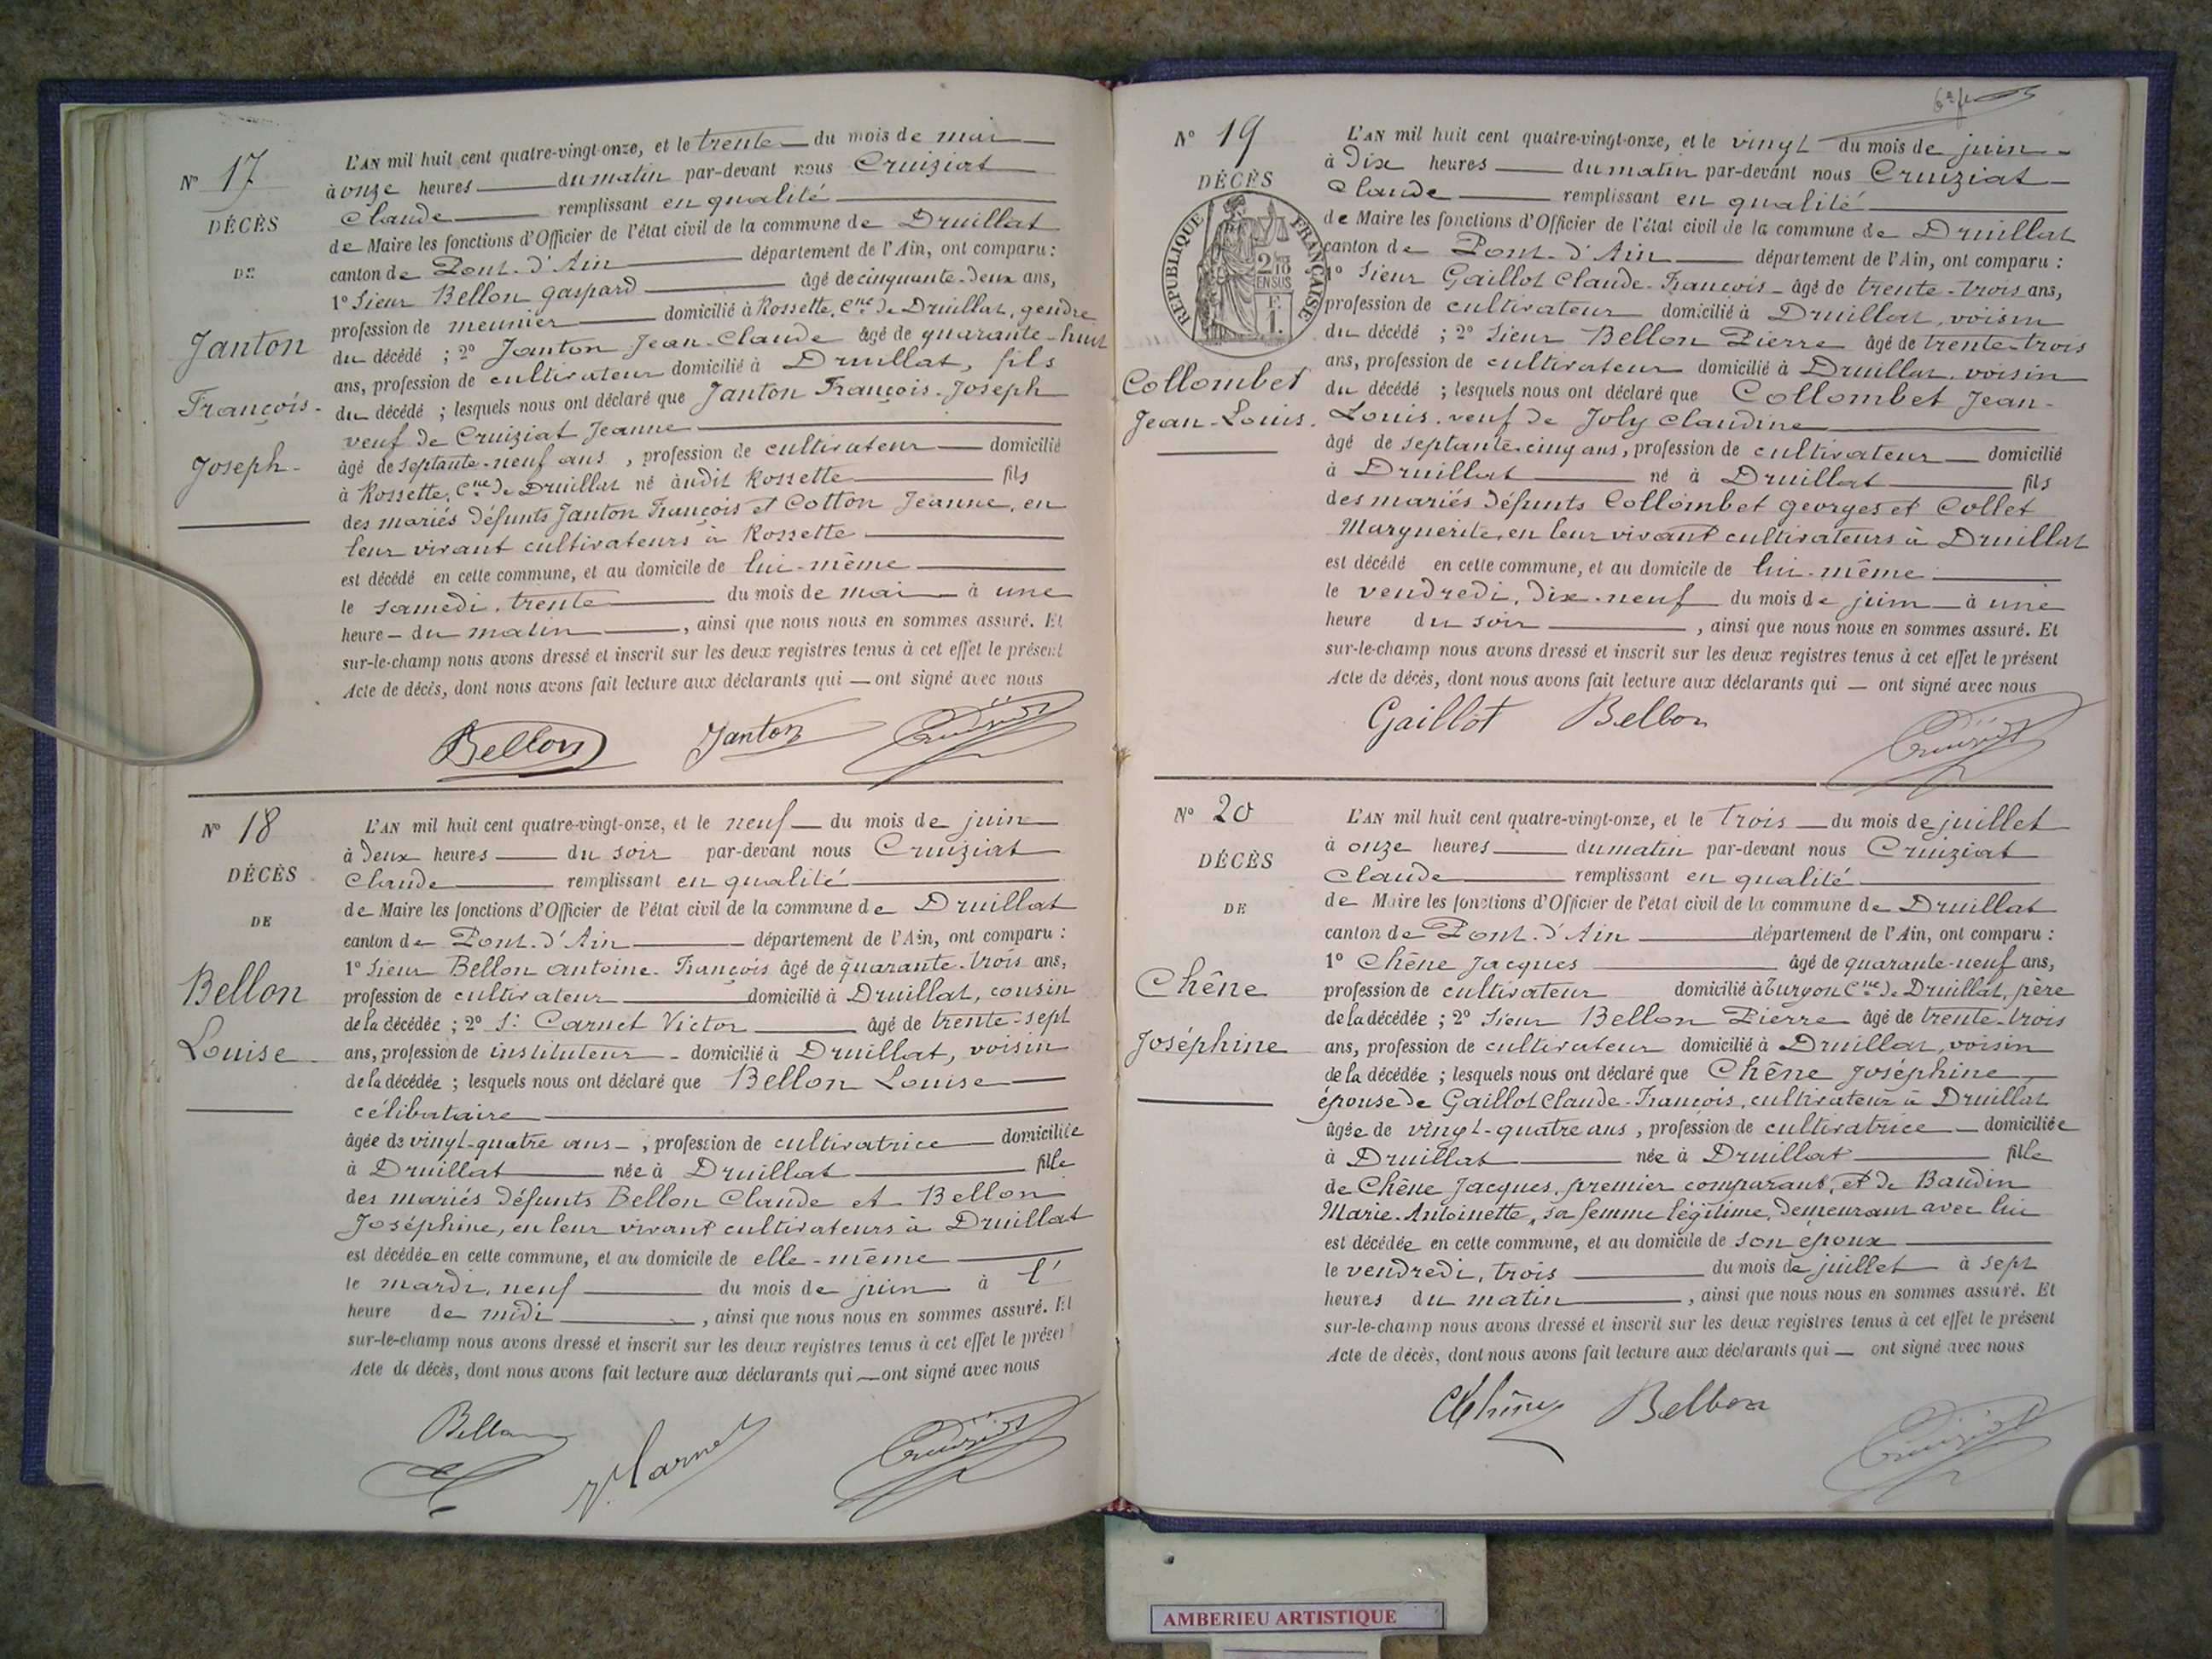 N° 17
DÉCÈS
DE
Janton
François-
Joseph-
L'AN mil huit cent quatre-vingt-onze, et le trente du mois de mai
à onze heures du matin par-devant nous Cruiziat
Claude remplissant en qualité
de Maire les fonctions d'Officier de l'état civil de la commune de Druillat
canton de Pont-d'Ain département de l'Ain, ont comparu :
1° Sieur Bellon Gaspard âgé de cinquante-deux ans,
profession de meunier domicilié à Rossette, Cne de Druillat, gendre
du décédé ; 2° Janton Jean-Claude âgé de quarante-huit
ans, profession de cultivateur domicilié à Druillat, fils
du décédé ; lesquels nous ont déclaré que Janton François-Joseph
veuf de Cruiziat Jeanne
âgé de septante-neuf ans, profession de cultivateur domicilié
à Rossette, Cne de Druillat né audit Rossette fils
des mariés défunts Janton François et Cotton Jeanne, en
leur vivant cultivateurs à Rossette
est décédé en cette commune, et au domicile de lui-même
le samedi, trente du mois de mai à une
heure du matin, ainsi que nous nous en sommes assuré. Et
sur-le-champ nous avons dressé et inscrit sur les deux registres tenus à cet effet le présent
Acte de décès, dont nous avons fait lecture aux déclarants qui — ont signé avec nous
Bellon Janton Cruiziat
N° 18
DÉCÈS
DE
Bellon
Louise
L'AN mil huit cent quatre-vingt-onze, et le neuf du mois de juin
à deux heures du soir par-devant nous Cruiziat
Claude remplissant en qualité
de Maire les fonctions d'Officier de l'état civil de la commune de Druillat
canton de Pont-d'Ain département de l'Ain, ont comparu :
1° Sieur Bellon Antoine-François âgé de quarante-trois ans,
profession de cultivateur domicilié à Druillat, cousin
de la décédée ; 2° Sr Carnet Victor âgé de trente-sept
ans, profession de instituteur domicilié à Druillat, voisin
de la décédée ; lesquels nous ont déclaré que Bellon Louise
célibataire
âgée de vingt-quatre ans, profession de cultivatrice domiciliée
à Druillat née à Druillat fille
des mariés défunts Bellon Claude et Bellon
Joséphine, en leur vivant cultivateurs à Druillat
est décédée en cette commune, et au domicile de elle-même
le mardi, neuf du mois de juin à l'
heure de midi, ainsi que nous nous en sommes assuré. Et
sur-le-champ nous avons dressé et inscrit sur les deux registres tenus à cet effet le présent
Acte de décès, dont nous avons fait lecture aux déclarants qui — ont signé avec nous
Bellon V. Carnet Cruiziat
N° 19
DÉCÈS
RÉPUBLIQUE FRANÇAISE
Collombet
Jean-Louis.
L'AN mil huit cent quatre-vingt-onze, et le vingt du mois de juin
à dix heures du matin par-devant nous Cruiziat
Claude remplissant en qualité
de Maire les fonctions d'Officier de l'état civil de la commune de Druillat
canton de Pont-d'Ain département de l'Ain, ont comparu :
1° Sieur Gaillot Claude-François âgé de trente-trois ans,
profession de cultivateur domicilié à Druillat, voisin
du décédé ; 2° Sieur Bellon Pierre âgé de trente-trois
ans, profession de cultivateur domicilié à Druillat, voisin
du décédé ; lesquels nous ont déclaré que Collombet Jean-
Louis, veuf de Joly Claudine
âgé de septante-cinq ans, profession de cultivateur domicilié
à Druillat né à Druillat fils
des mariés défunts Collombet Georges et Collet
Marguerite, en leur vivant cultivateurs à Druillat
est décédé en cette commune, et au domicile de lui-même
le vendredi, dix-neuf du mois de juin à une
heure du soir, ainsi que nous nous en sommes assuré. Et
sur-le-champ nous avons dressé et inscrit sur les deux registres tenus à cet effet le présent
Acte de décès, dont nous avons fait lecture aux déclarants qui — ont signé avec nous
Gaillot Bellon Cruiziat
N° 20
DÉCÈS
DE
Chêne
Joséphine
L'AN mil huit cent quatre-vingt-onze, et le trois du mois de juillet
à onze heures du matin par-devant nous Cruiziat
Claude remplissant en qualité
de Maire les fonctions d'Officier de l'état civil de la commune de Druillat
canton de Pont-d'Ain département de l'Ain, ont comparu :
1° Chêne Jacques âgé de quarante-neuf ans,
profession de cultivateur domicilié à Turgon Cne de Druillat, père
de la décédée ; 2° Sieur Bellon Pierre âgé de trente-trois
ans, profession de cultivateur domicilié à Druillat, voisin
de la décédée ; lesquels nous ont déclaré que Chêne Joséphine
épouse de Gaillot Claude-François, cultivateur à Druillat
âgée de vingt-quatre ans, profession de cultivatrice domiciliée
à Druillat née à Druillat fille
de Chêne Jacques, premier comparant, et de Baudin
Marie-Antoinette, sa femme légitime, demeurant avec lui
est décédée en cette commune, et au domicile de son époux
le vendredi, trois du mois de juillet à sept
heures du matin, ainsi que nous nous en sommes assuré. Et
sur-le-champ nous avons dressé et inscrit sur les deux registres tenus à cet effet le présent
Acte de décès, dont nous avons fait lecture aux déclarants qui — ont signé avec nous
Chêne Bellon Cruiziat
AMBERIEU ARTISTIQUE